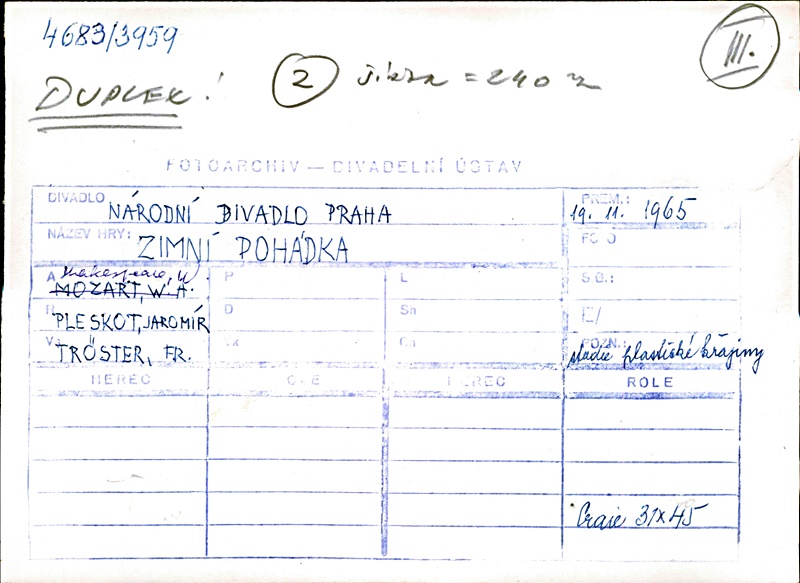 4683/3959
III.
DUPLEX! 2 = 240
FOTOARCHIV — DIVADELNÍ ÚSTAV
DIVADLO NÁRODNÍ DIVADLO PRAHA
PREM.: 19. 11. 1965
NÁZEV HRY: ZIMNÍ POHÁDKA
FOTO
A Shakespeare, W.
MOZART, W. A.
P
L
S.B.:
R PLESKOT, JAROMÍR
D
Sn
V. TRÖSTER, FR.
POZN.: studie plastické krajiny
HEREC ROLE HEREC ROLE
31x45